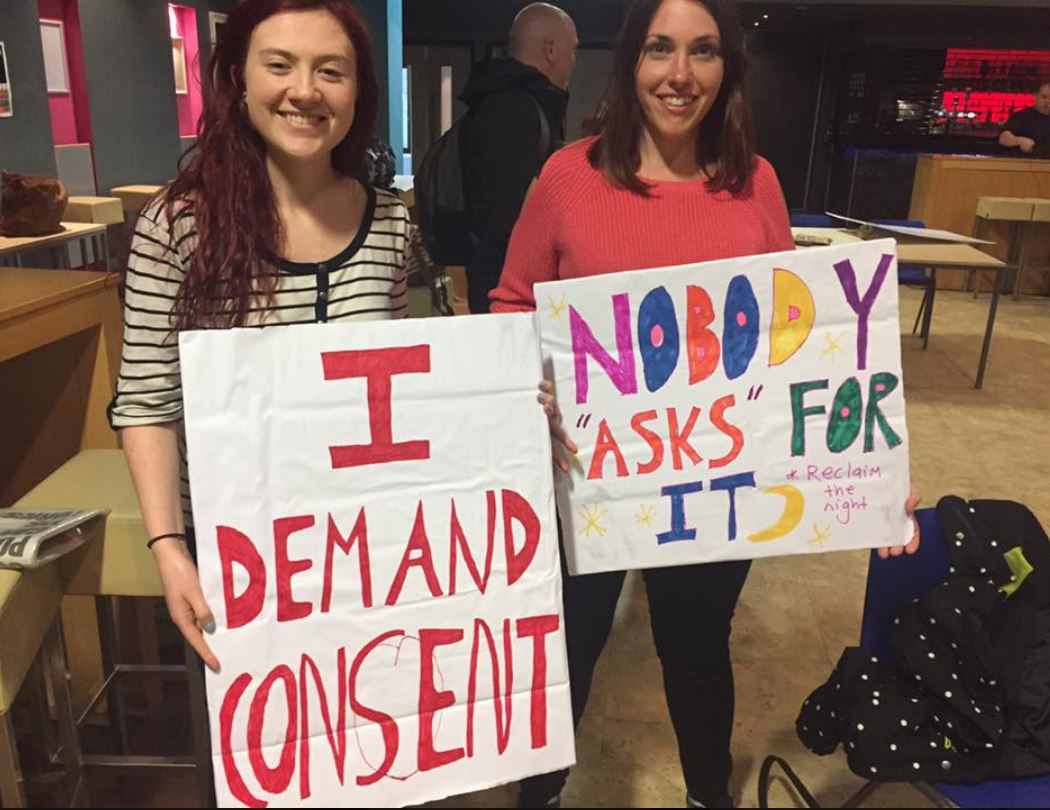 I
DEMAND
CONSENT
NOBODY
"ASKS" FOR
IT
* Reclaim
the
night